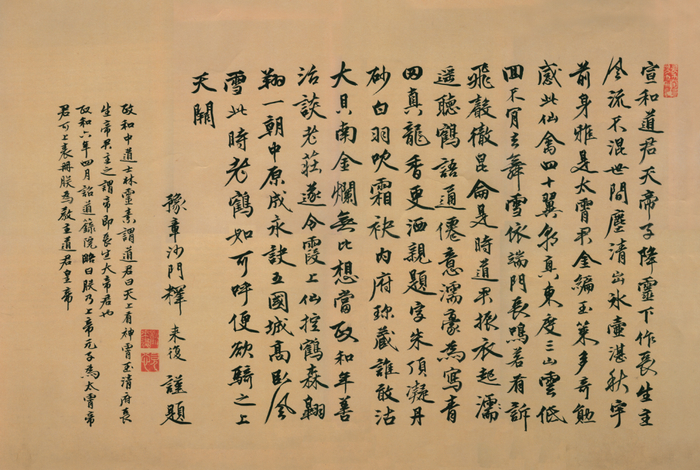 宣和道君天帝子降靈下作長生主
風流不混世間塵清出冰壺湛秋宇
前身雅是太霄君金編玉策多奇勳
感此仙禽四十翼朝真東度三山雲低
回不肯去舞雪依端門長鳴若有訴
飛轂徹崑侖是時道君振衣起濡
遥聽鶴語通僊意濡豪為寫青
田真龍香更洒親題字朱頂凝丹
砂白羽吹霜袂內府珎藏誰敢沽
大貝南金爛無比想當政和年善
治談老莊遂令霞上仙控鶴森翱
翔一朝中原成永訣五國城高臥風
雪此時老鶴如可呼便欲騎之上
天闕
豫章沙門釋來復謹題
政和中道士林靈素謂道君曰天上有神霄玉清府長
生帝君主之謂帝即長生大帝君也
政和六年四月詔道錄院略曰朕乃上帝元子為太霄帝
君可上表冊朕為教主道君皇帝